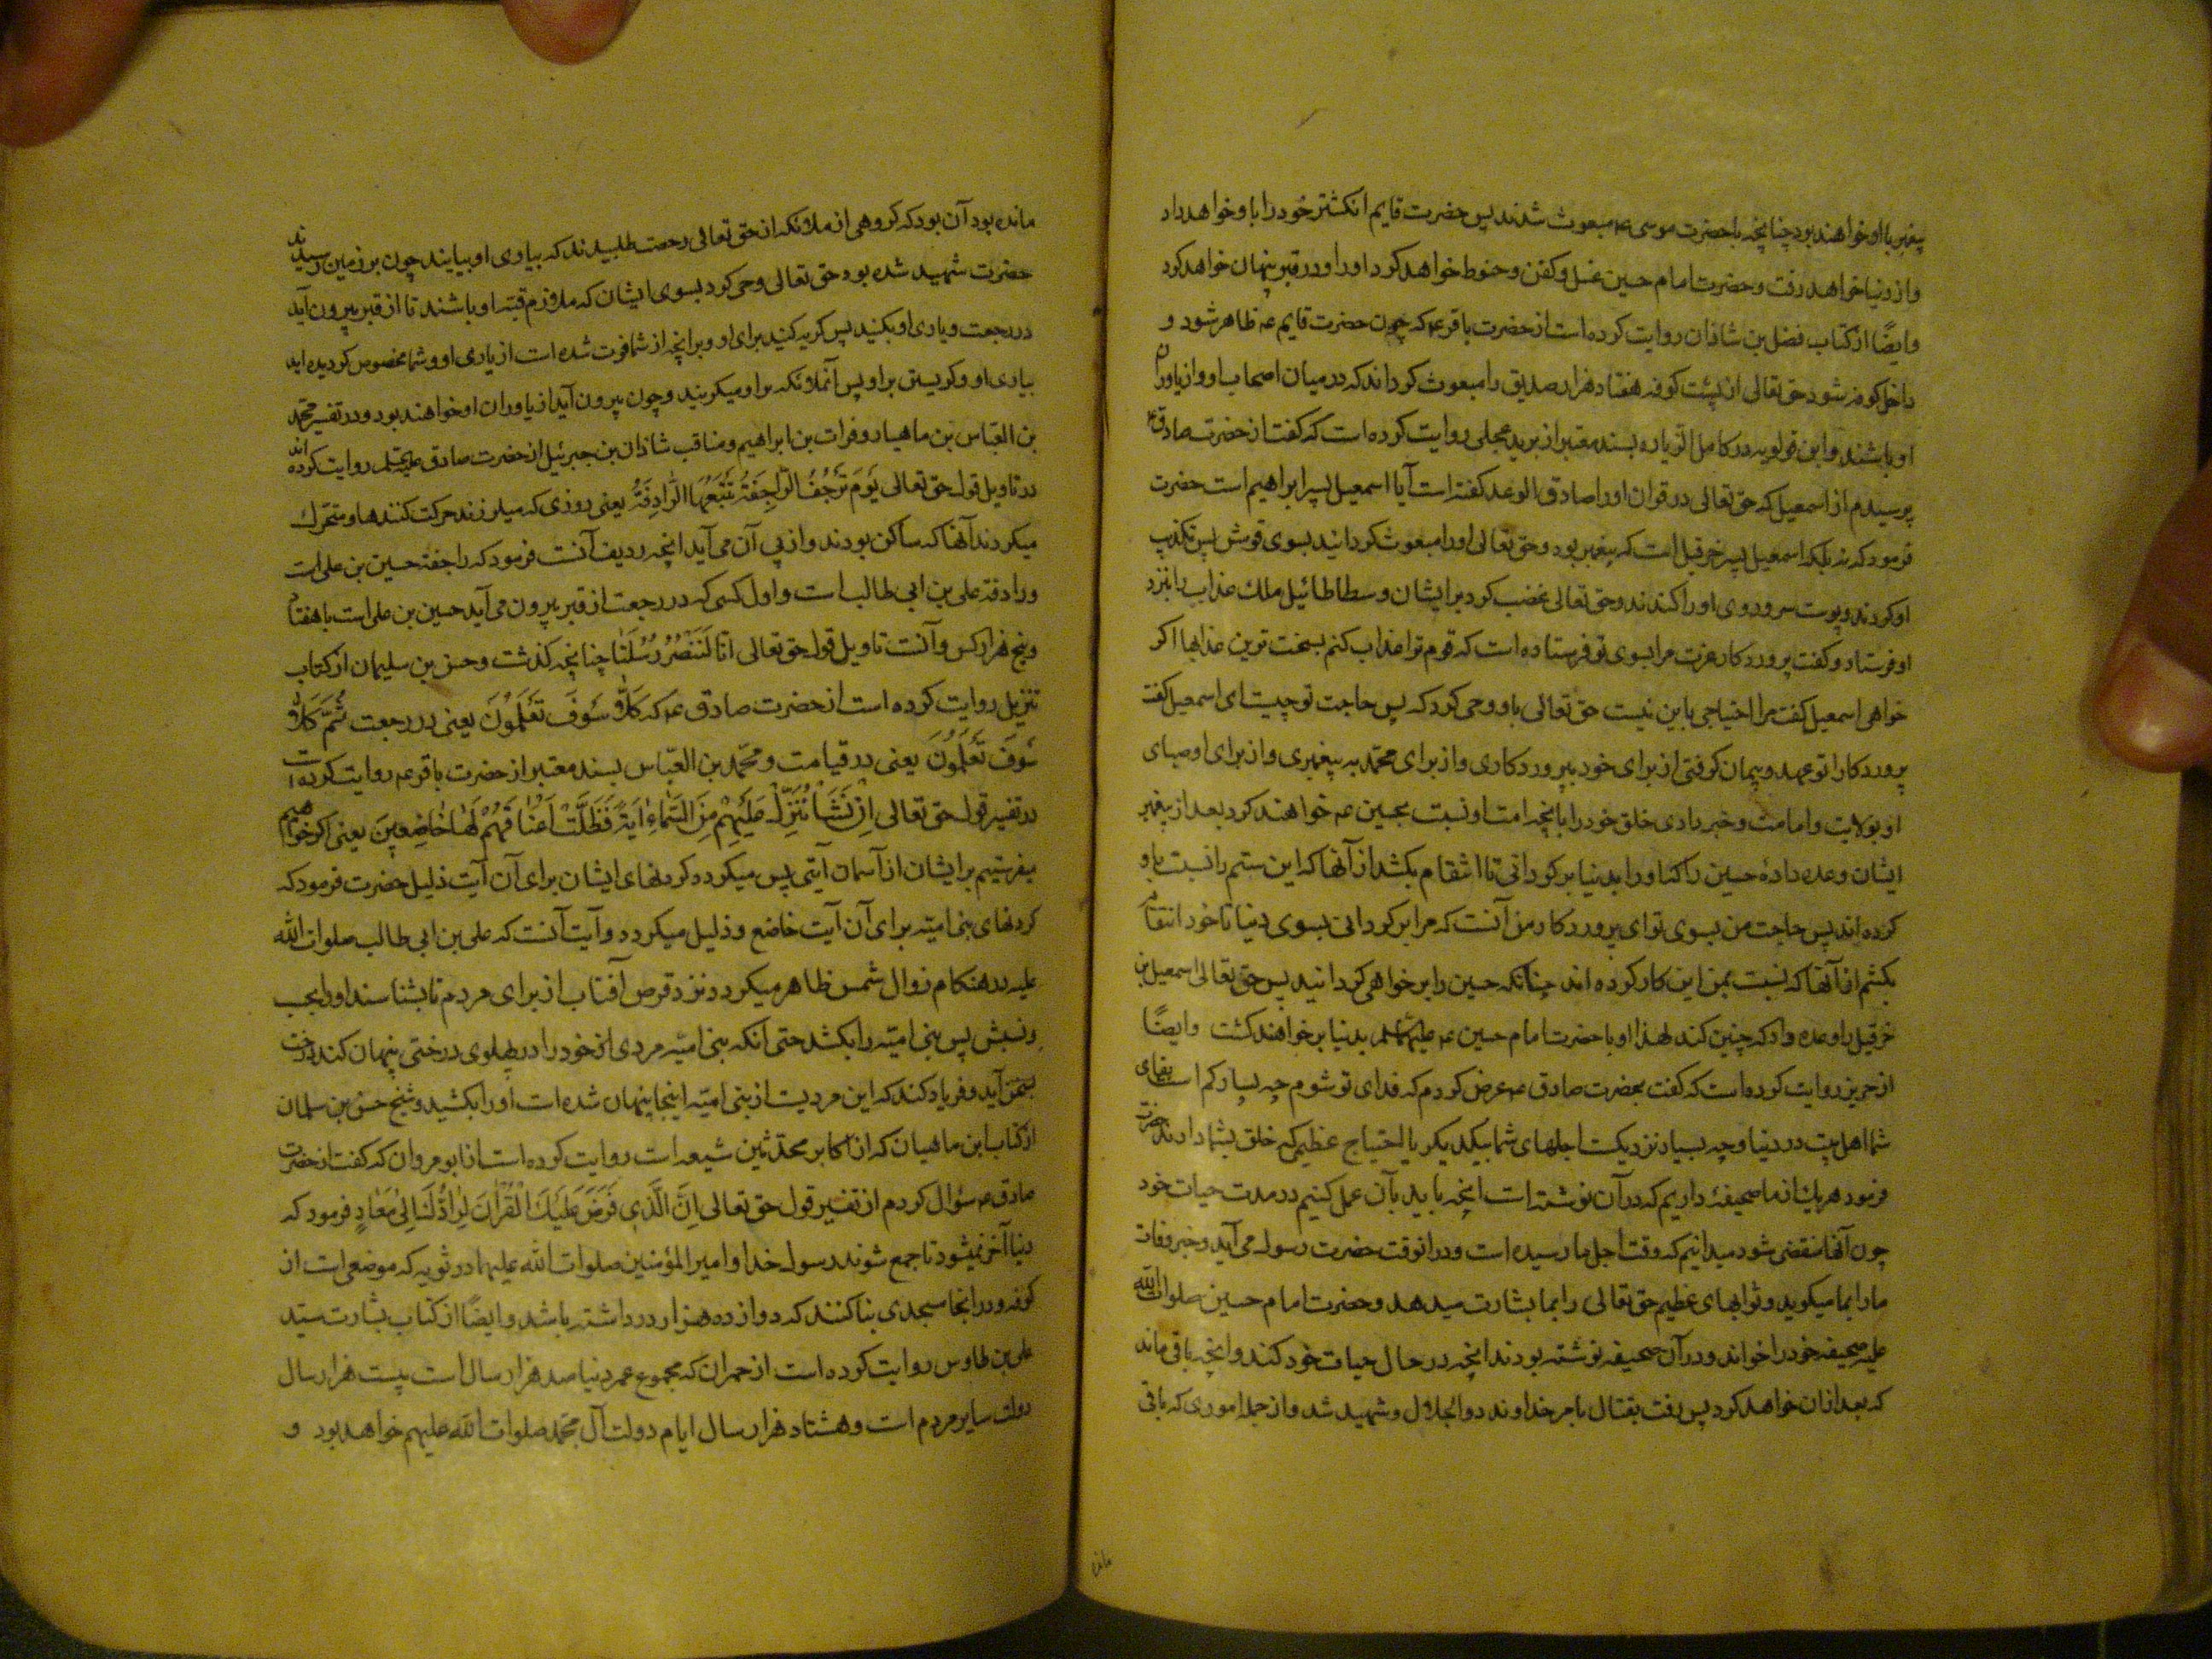 پیغمبر با او خواهند بود چنانچه با حضرت موسی ع مبعوث شدند پس حضرت قایم انکشتر خود را باو خواهد داد
و از دنیا خواهد رفت و حضرت امام حسین غسل و کفن و حنوط خواهد کرد او را و در قبر پنهان خواهد کرد
و ایضًا از کتاب فضل بن شاذان روایت کرده است از حضرت باقر ع که چون حضرت قایم ع ظاهر شود و
داخل کوفه شود حق تعالی از پشت کوفه هفتاد هزار صدیق را مبعوث کرداند که در میان اصحاب او و از یاوران
او باشند و ابن قولویه در کامل الزیاره بسند معتبر از برید عجلی روایت کرده است که کفت از حضرت صادق ع
پرسیدم از اسمعیل که حق تعالی در قران او را صادق الوعد کفته است آیا اسمعیل پسر ابراهیم است حضرت
فرمود که نه بلکه اسمعیل پسر خرقیل است که پیغمبر بود و حق تعالی او را مبعوث کردانید بسوی قومش پس تکذیب
او کردند و پوست سر و روی او را کندند و حق تعالی غضب کرد بر ایشان و سطاطائیل ملک عذاب را بنزد
او فرستاد و کفت پروردکار عزت مرا بسوی تو فرستاده است که قوم ترا عذاب کنم بسخت ترین عذابها اکر
خواهی اسمعیل کفت مرا احتیاجی باین نیست حق تعالی باو وحی کرد که پس حاجت تو چیست ای اسمعیل کفت
پروردکارا تو عهد و پیمان کرفتی از برای خود بپروردکاری و از برای محمّد به پیغمبری و از برای اوصیای
او بولایت و امامت و خبر دادی خلق خود را بانچه امت او نسبت بحسین ع خواهند کرد بعد از پیغمبر
ایشان و وعده دادهٔ حسین را که او را بدنیا برکردانی تا انتقام بکشد از آنها که این ستم را نسبت باو
کرده اند پس حاجت من بسوی تو ای پروردکار من آنست که مرا برکردانی بسوی دنیا تا خود انتقام
بکشم از آنها که نسبت بمن این کار کرده اند چنانکه حسین را بر خواهی کردانید پس حق تعالی اسمعیل بن
خرقیل را وعده داد که چنین کند لهذا او با حضرت امام حسین ع بدنیا برخواهند کشت وایضًا
از حریز روایت کرده است که کفت بحضرت صادق ع عرض کردم که فدای تو شوم چه بسیار کم است بقای
شما اهل بیت در دنیا و چه بسیار نزدیکست اجلهای شما بیکدیکر با احتیاج عظیمی که خلق بشما دارند حضرت
فرمود هریک از ما صحیفهٔ داریم که در آن نوشته است انچه باید بآن عمل کنیم در مدت حیات خود
چون آنها منقضی شود میدانیم که وقت اجل ما رسیده است و در انوقت حضرت رسول می آید و خبر وفات
ما را بما میکوید و ثوابهای عظیم حق تعالی را بما بشارت میدهد و حضرت امام حسین صلوات الله
علیه صحیفه خود را خواند و در آن صحیفه نوشته بودند انچه در حال حیات خود کند و انچه باقی ماند
که بعد از ان خواهد کرد پس رفت بقتال بامر خداوند ذوالجلال و شهید شد و از جمله اموری که باقی
مانده
مانده بود آن بود که کروهی از ملائکه از حق تعالی رخصت طلبیدند که بیاوری او بیایند چون بر زمین رسیدند
حضرت شهید شده بود حق تعالی وحی کرد بسوی ایشان که ملازم قبّه او باشند تا از قبر بیرون آید
در رجعت و یاری او بکنید پس کریه کنید برای او و بر انچه از شما فوت شده است از یاری او و شما مخصوص کردیده اید
بیاری او و کریستن بر او پس آن ملائکه بر او میکریند و چون بیرون آید از یاوران او خواهند بود و در تفسیر محمّد
بن العبّاس بن ماهیار و فرات بن ابراهیم و مناقب شاذان بن جبرئیل از حضرت صادق روایت کرده اند
در تاویل قول حق تعالی یَوْمَ تَرْجُفُ الرَّاجِفَةُ تَتْبَعُهَا الرَّادِفَةُ یعنی روزی که میلرزند حرکت کنندها و متحرّک
میکردند آنها که ساکن بودند و از پی آن می آید انچه ردیف آنست فرمود که راجفه حسین بن علی است
و رادفه علی بن ابی طالب است و اول کسی که در رجعت از قبر بیرون می آید حسین بن علی است با هفتاد
و پنج هزار کس و آنست تاویل قول حق تعالی اِنّا لَنَنْصُرُ رُسُلَنَا چنانچه کذشت و حسن بن سلیمان از کتاب
تنزیل روایت کرده است از حضرت صادق ع که کَلَّا سَوْفَ تَعْلَمُونَ یعنی در رجعت ثُمَّ کَلَّا
سَوْفَ تَعْلَمُونَ یعنی در قیامت و محمّد بن العبّاس بسند معتبر از حضرت باقر ع روایت کرده است
در تفسیر قول حق تعالی اِنْ نَشَأْ نُنَزِّلْ عَلَیْهِمْ مِنَ السَّمَاءِ اٰیَةً فَظَلَّتْ اَعْنَاقُهُمْ لَهَا خَاضِعِینَ یعنی اکر خواهیم
بفرستیم بر ایشان از آسمان آیتی پس میکردد کردنهای ایشان برای آن آیت ذلیل حضرت فرمود که
کردنهای بنی امیّه برای آن آیت خاضع و ذلیل میکردد و آیت آنست که علی بن ابی طالب صلوات الله
علیه در هنکام زوال شمس ظاهر میکردد نزد قرص آفتاب از برای مردم تا بشناسند او را بحسب
و نسبش پس بنی امیّه را بکشد حتی انکه بنی امیّه مردی از خود را در پهلوی درختی پنهان کند درخت
بسخن آید و فریاد کند که این مردیست از بنی امیّه اینجا پنهان شده است او را بکشید و شیخ حسن بن سلیمان
از کتاب ابن ماهیار که از اکابر محدّثین شیعه است روایت کرده است از ابو مروان که کفت از حضرت
صادق ع سؤال کردم از تفسیر قول حق تعالی اِنَّ الَّذِی فَرَضَ عَلَیْکَ الْقُرْاٰنَ لَرَادُّکَ اِلٰی مَعَادٍ فرمود که
دنیا آخر نمیشود تا جمع شوند رسول خدا و امیر المؤمنین صلوات الله علیهما در ثویه که موضعی است از
کوفه و در انجا مسجدی بنا کنند که دوازده هزار در داشته باشد و ایضًا از کتاب بشارت سیّد
علی بن طاوس روایت کرده است از حمران که مجموع عمر دنیا صد هزار سال است بیست هزار سال
دولت سایر مردم است و هشتاد هزار سال ایام دولت آل محمّد صلوات الله علیهم خواهد بود و